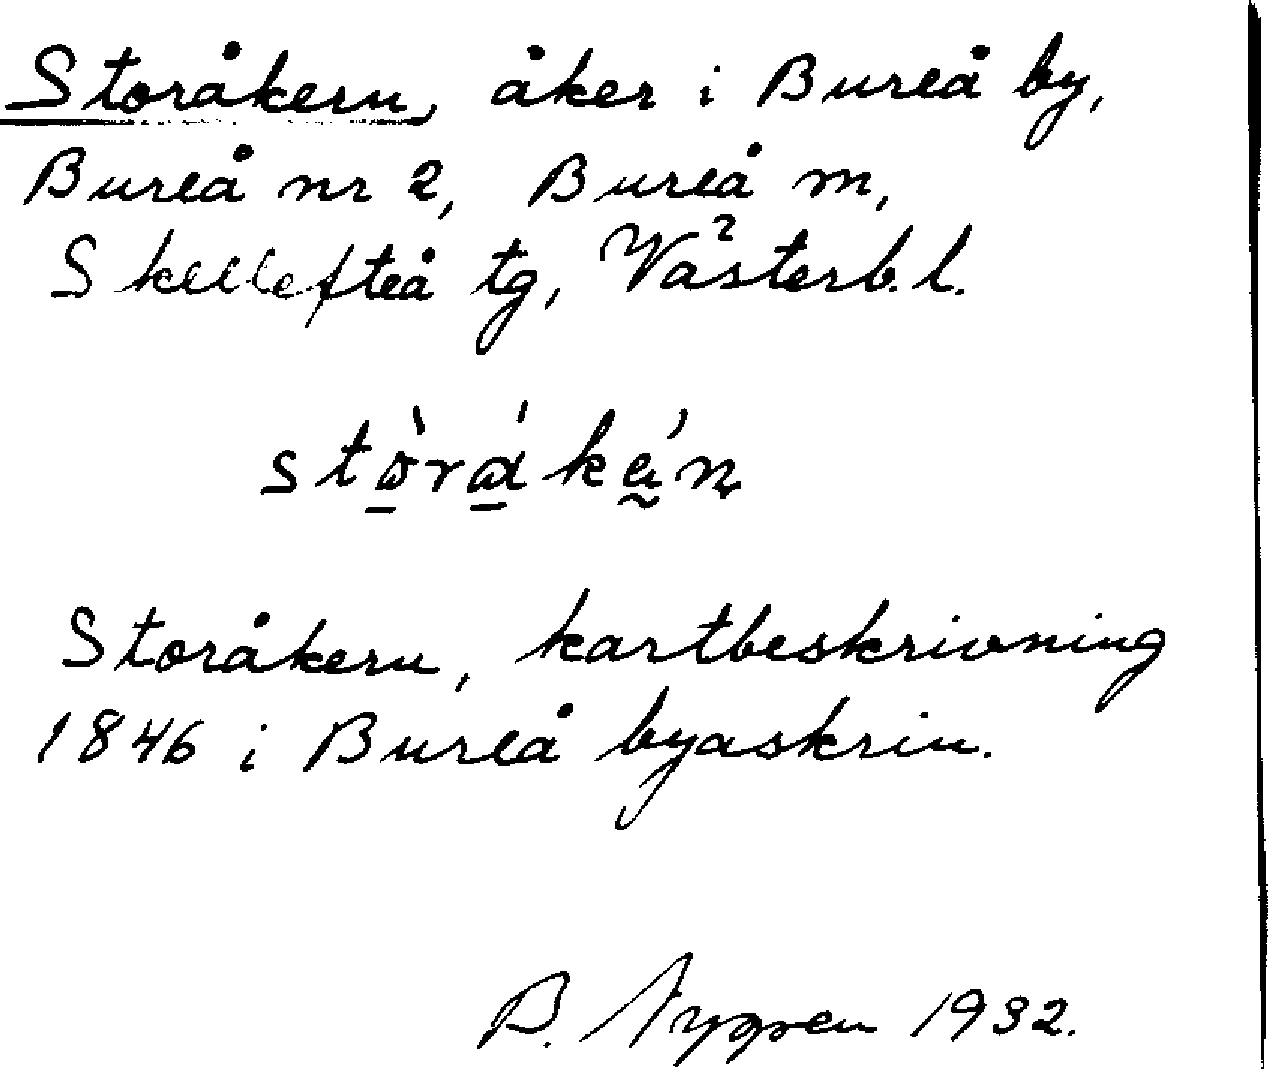 Storåkern, åker i Bureå by,
Bureå nr 2, Bureå m,
Skellefteå tg, Västerb. l.
Storåkern, kartbeskrivning
1846 i Bureå byaskrin.
B. Nygren 1932.